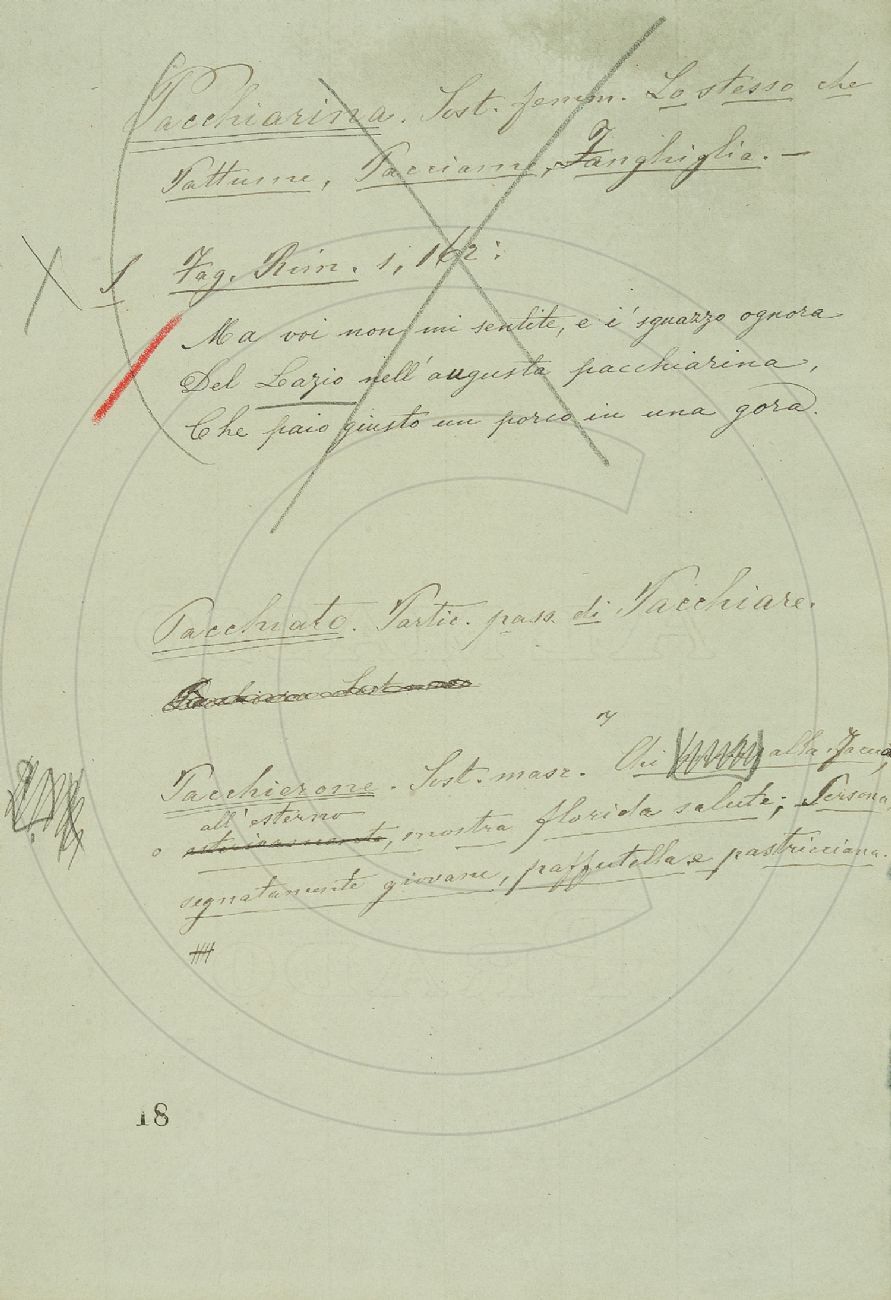 Pacchiarina. Sost. femm. Lo stesso che
Pattume, Pacciame, Fanghiglia. —
§ Fag. Rim. 1, 162:
Ma voi non mi sentite, e i' sguazzo ognora
Del Lazio nell'augusta pacchiarina,
Che paio giusto un porco in una gora.
Pacchiato. Partic. pass. di Pacchiare.
Pacchierone. Sost. masc. Chi alla faccia,
all'esterno
o esteriormente, mostra florida salute; Persona,
segnatamente giovane, paffutella e pastricciana.
18